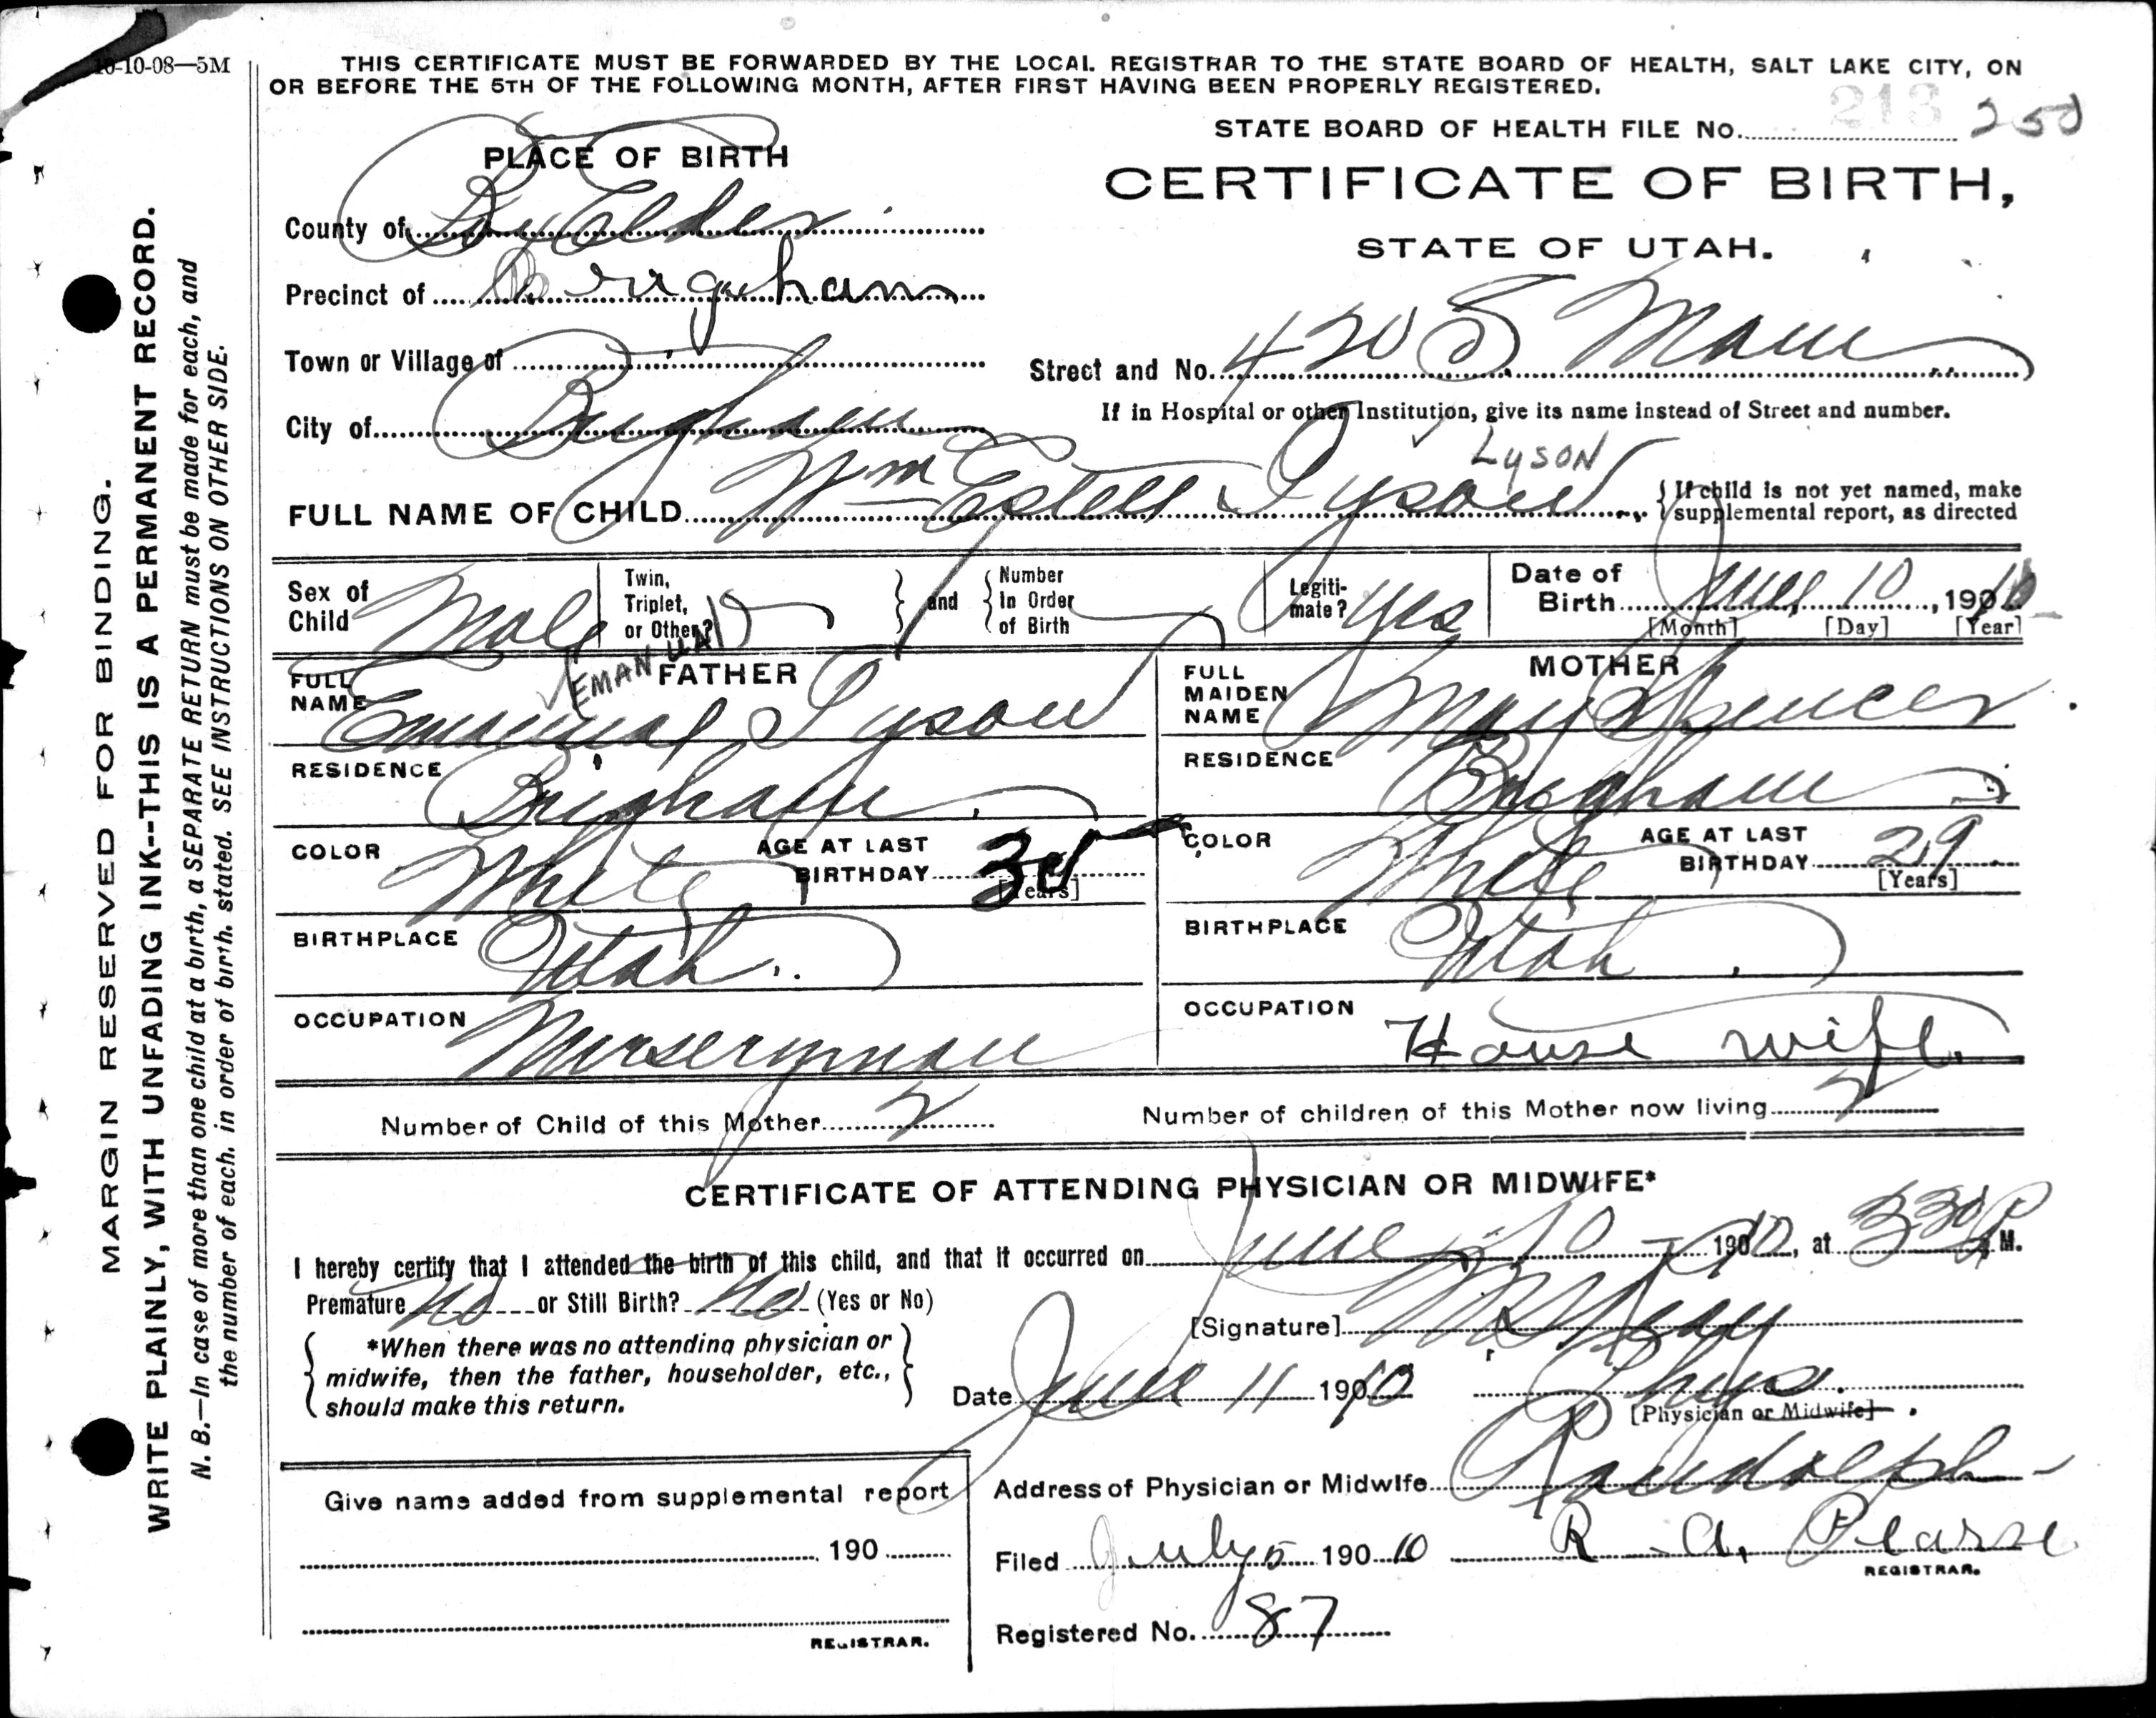 10-10-08—5M
THIS CERTIFICATE MUST BE FORWARDED BY THE LOCAL REGISTRAR TO THE STATE BOARD OF HEALTH, SALT LAKE CITY, ON
OR BEFORE THE 5TH OF THE FOLLOWING MONTH, AFTER FIRST HAVING BEEN PROPERLY REGISTERED.
STATE BOARD OF HEALTH FILE No. 213 250
PLACE OF BIRTH
CERTIFICATE OF BIRTH,
STATE OF UTAH.
County of Box Elder
Precinct of Brigham
Town or Village of
Street and No. 420 S Main
If in Hospital or other Institution, give its name instead of Street and number.
City of Brigham
LYSON
FULL NAME OF CHILD Wm Estell Lyson
{ If child is not yet named, make
supplemental report, as directed
Sex of Child Male
Twin, Triplet, or Other?
and
Number In Order of Birth
Legiti-mate? Yes
Date of Birth June 10, 1910
[Month] [Day] [Year]
FATHER
EMANUAL
FULL NAME Emanual Lyson
RESIDENCE Brigham
COLOR White
AGE AT LAST BIRTHDAY 30
[Years]
BIRTHPLACE Utah
OCCUPATION Nurseryman
MOTHER
FULL MAIDEN NAME May Spencer
RESIDENCE Brigham
COLOR White
AGE AT LAST BIRTHDAY 29
[Years]
BIRTHPLACE Utah
OCCUPATION House wife
Number of Child of this Mother 2
Number of children of this Mother now living 2
CERTIFICATE OF ATTENDING PHYSICIAN OR MIDWIFE*
I hereby certify that I attended the birth of this child, and that it occurred on June 10 1910, at 330 P M.
Premature No or Still Birth? No (Yes or No)
[Signature]
*When there was no attending physician or
midwife, then the father, householder, etc.,
should make this return.
Date June 11 1910 Phys.
[Physician or Midwife]
Address of Physician or Midwife Randolph
Give name added from supplemental report
190
REGISTRAR.
Filed July 5 190 10 R. A. Pearse
REGISTRAR.
Registered No. 87
MARGIN RESERVED FOR BINDING.
WRITE PLAINLY, WITH UNFADING INK--THIS IS A PERMANENT RECORD.
N. B.—In case of more than one child at a birth, a SEPARATE RETURN must be made for each, and
the number of each. in order of birth. stated. SEE INSTRUCTIONS ON OTHER SIDE.